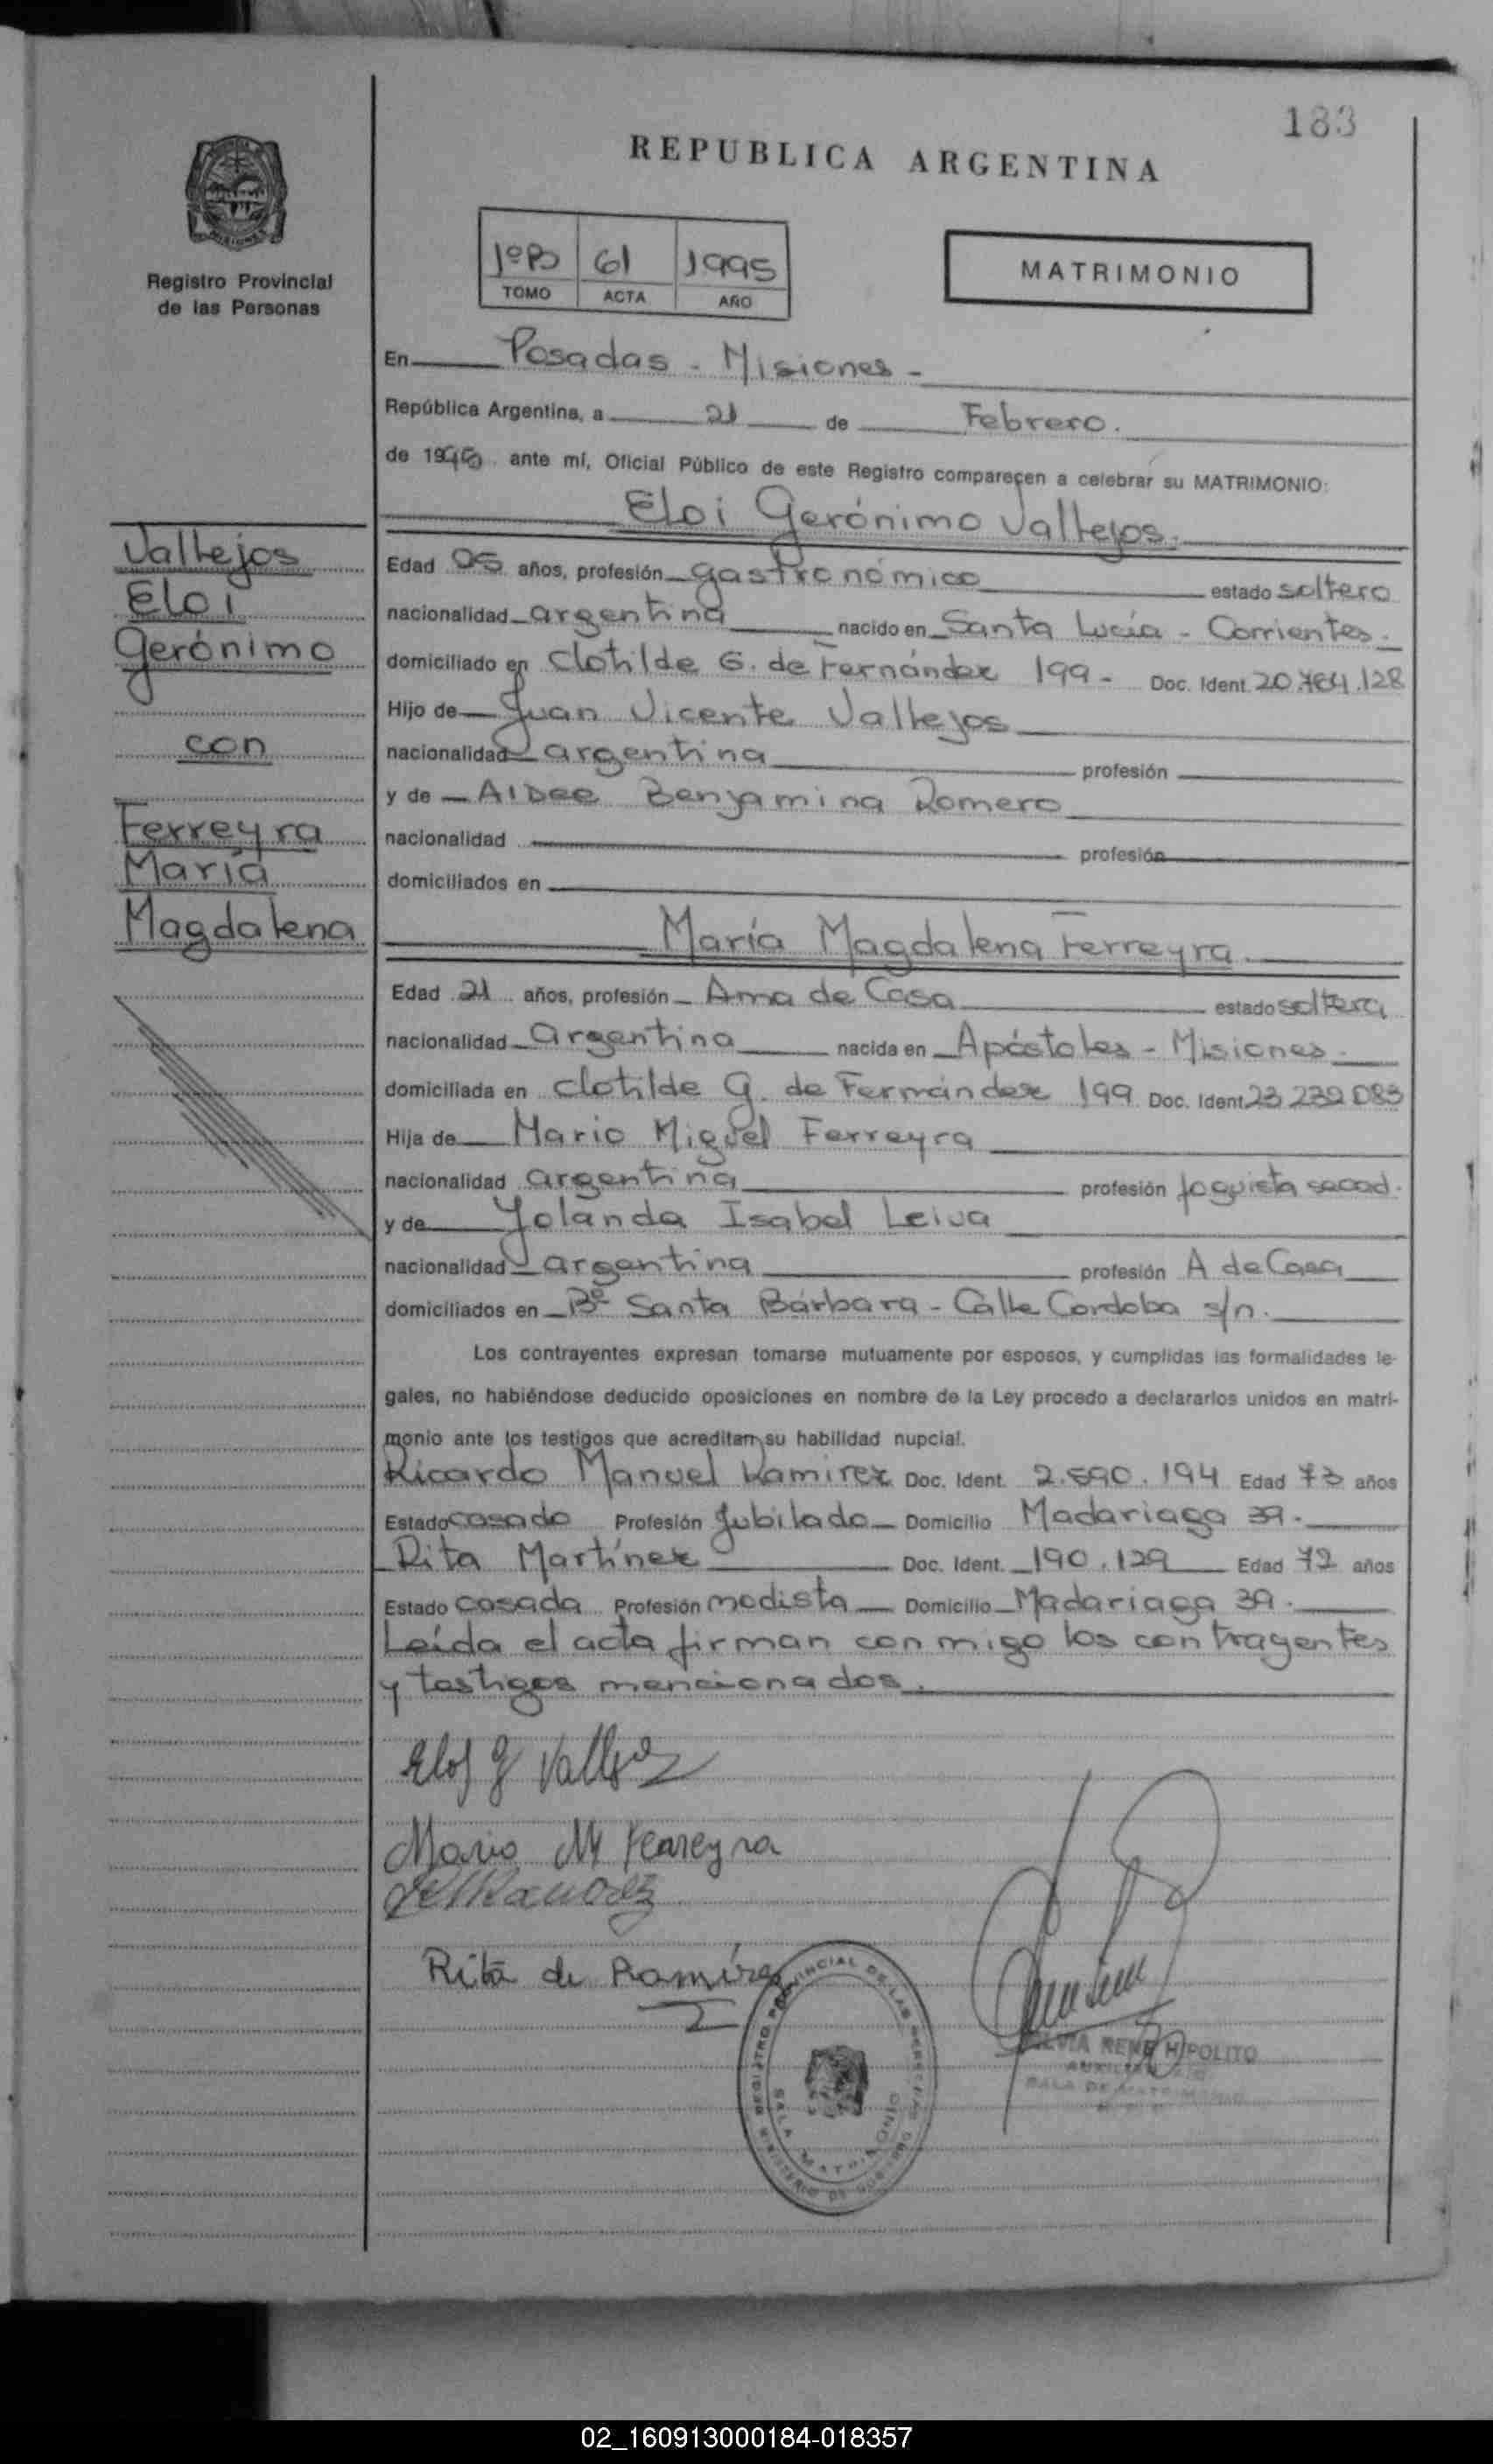 183
REPUBLICA ARGENTINA
Registro Provincial
de las Personas
1ºB 61 1995
TOMO ACTA AÑO
MATRIMONIO
En Posadas - Misiones -
República Argentina, a 21 de Febrero.
de 1995 ante mí, Oficial Público de este Registro comparecen a celebrar su MATRIMONIO:
Eloi Gerónimo Vallejos.
Vallejos
Eloi
Gerónimo
con
Ferreyra
María
Magdalena
Edad años, profesión gastronómico estado soltero
nacionalidad argentina nacido en Santa Lucía - Corrientes.
domiciliado en Clotilde G. de Fernández 199 - Doc. Ident. 20.764.128
Hijo de Juan Vicente Vallejos
nacionalidad argentina profesión
y de Aidee Benjamina Romero
nacionalidad profesión
domiciliados en
María Magdalena Ferreyra.
Edad 21 años, profesión Ama de Casa estado soltera
nacionalidad argentina nacida en Apóstoles - Misiones.
domiciliada en Clotilde G. de Fernández 199 Doc. Ident. 23 232 083
Hija de Mario Miguel Ferreyra
nacionalidad argentina profesión foguista secad.
y de Yolanda Isabel Leiva
nacionalidad argentina profesión A de Casa
domiciliados en Bº Santa Bárbara - Calle Cordoba s/n.
Los contrayentes expresan tomarse mutuamente por esposos, y cumplidas las formalidades le-
gales, no habiéndose deducido oposiciones en nombre de la Ley procedo a declararlos unidos en matri-
monio ante los testigos que acreditan su habilidad nupcial.
Ricardo Manuel Ramirez Doc. Ident. 2.590.194 Edad 73 años
Estado casado Profesión Jubilado Domicilio Madariaga 39.
Rita Martínez Doc. Ident. 190.129 Edad 72 años
Estado casada Profesión modista Domicilio Madariaga 39.
Leída el acta firman conmigo los contrayentes
y testigos mencionados.
Eloi G Vallejos
Mario M Ferreyra
Rita de Ramírez
REGISTRO PROVINCIAL DE LAS PERSONAS
SALA MATRIMONIO
MINISTERIO DE GOBIERNO
SILVIA RENE HIPOLITO
AUXILIAR
SALA DE MATRIMONIO
02_160913000184-018357